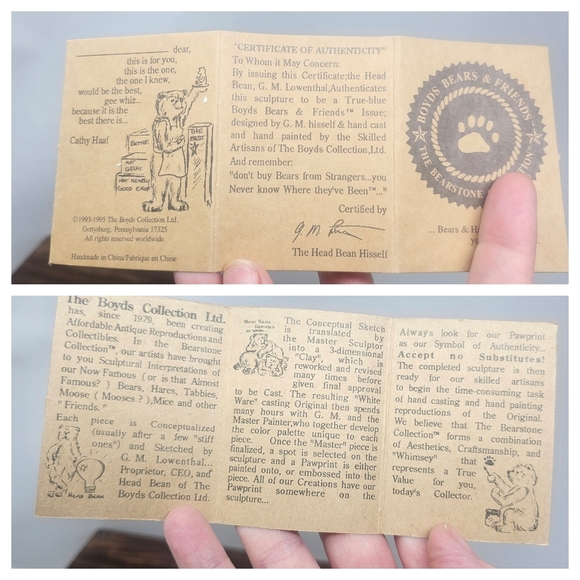 dear,
this is for you,
this is the one,
the one I knew,
would be the best,
gee whiz...
because it is the
best there is...
Cathy Haaf
BETTER
NOT GREAT
NOT NEARLY
GOOD ENUF
THE BEST
©1993-1995 The Boyds Collection Ltd.
Gettysburg, Pennsylvania 17325
All rights reserved worldwide
Handmade in China/Fabrique en Chine
"CERTIFICATE OF AUTHENTICITY"
To Whom it May Concern:
By issuing this Certificate;the Head
Bean, G. M. Lowenthal,Authenticates
this sculpture to be a True-blue
Boyds Bears & Friends™ Issue;
designed by G. M. hisself & hand cast
and hand painted by the Skilled
Artisans of The Boyds Collection,Ltd.
And remember:
"don't buy Bears from Strangers...you
Never know Where they've Been™..."
Certified by
The Head Bean Hisself
BOYDS BEARS & FRIENDS
THE BEARSTONE
... Bears & H
The Boyds Collection Ltd.
has, since 1979, been creating
Affordable Antique Reproductions and
Collectibles. In the Bearstone
Collection™, our artists have brought
to you Sculptural Interpretations of
our Now Famous (or is that Almost
Famous? ) Bears, Hares, Tabbies,
Moose ( Mooses ? ),Mice and other
" Friends."
Each piece is Conceptualized
(usually after a few "stiff
ones") and Sketched by
G. M. Lowenthal...
Proprietor, CEO, and
Head Bean of The
Boyds Collection Ltd.
HEAD BEAN
The Conceptual Sketch
is translated by
the Master Sculptor
into a 3-dimensional
"Clay", which is
reworked and revised
many times before
given final approval
to be Cast. The resulting "White
Ware" casting Original then spends
many hours with G. M. and the
Master Painter,who together develop
the color palette unique to each
piece. Once the "Master" piece is
finalized, a spot is selected on the
sculpture and a Pawprint is either
painted onto, or embossed into the
piece. All of our Creations have our
Pawprint somewhere on the
sculpture...
Always look for our Pawprint
as our Symbol of Authenticity...
Accept no Substitutes!
The completed sculpture is then
ready for our skilled artisans
to begin the time-consuming task
of hand casting and hand painting
reproductions of the Original.
We believe that The Bearstone
Collection™ forms a combination
of Aesthetics, Craftsmanship, and
"Whimsey" that
represents a True
Value for you,
today's Collector.